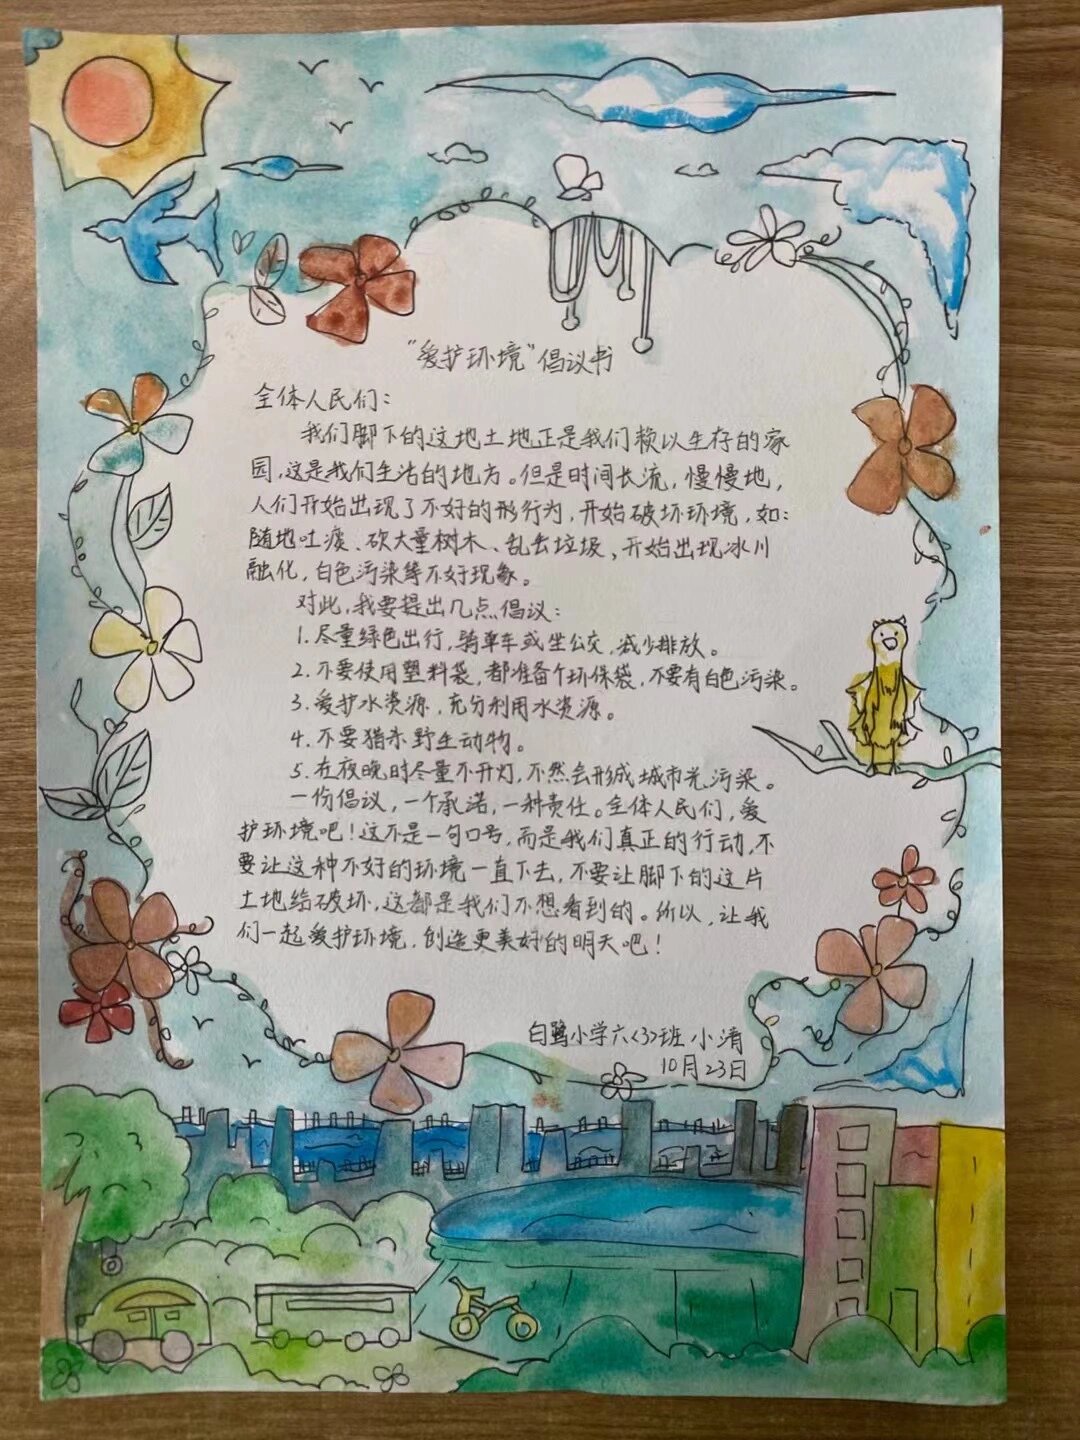 “爱护环境”倡议书
全体人民们：
我们脚下的这地土地正是我们赖以生存的家
园，这是我们生活的地方。但是时间长流，慢慢地，
人们开始出现了不好的形行为，开始破坏环境，如：
随地吐痰、砍大量树木、乱丢垃圾，开始出现冰川
融化，白色污染等不好现象。
对此，我要提出几点倡议：
1.尽量绿色出行，骑单车或坐公交，减少排放。
2.不要使用塑料袋，都准备个环保袋，不要有白色污染。
3.爱护水资源，充分利用水资源。
4.不要猎杀野生动物。
5.在夜晚时尽量不开灯，不然会形成城市光污染。
一份倡议，一个承诺，一种责任。全体人民们，爱
护环境吧！这不是一句口号，而是我们真正的行动，不
要让这种不好的环境一直下去，不要让脚下的这片
土地给破坏，这都是我们不想看到的。所以，让我
们一起爱护环境，创造更美好的明天吧！
白鹭小学六<3>班 小清
10月23日